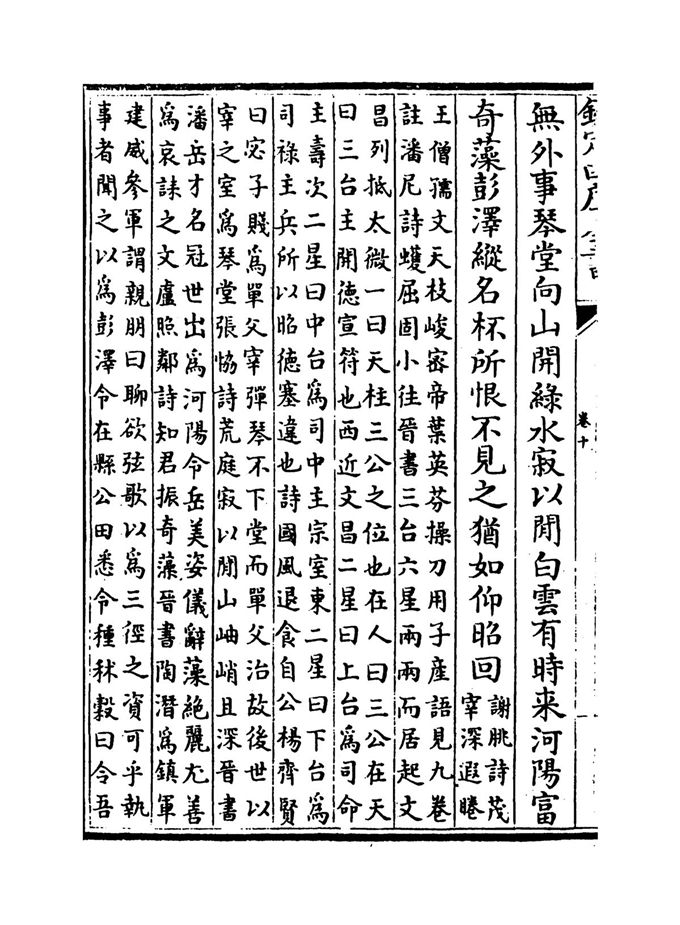 卷十
無外事琴堂向山開綠水寂以閒白雲有時来河陽富
奇藻彭澤縱名杯所恨不見之猶如仰昭回
謝朓詩茂
宰深遐睠
王僧孺文天枝峻密帝葉英芬操刀用子產語見九卷
註潘尼詩蠖屈固小往晉書三台六星兩兩而居起文
昌列抵太微一曰天柱三公之位也在人曰三公在天
曰三台主開德宣符也西近文昌二星曰上台爲司命
主壽次二星曰中台爲司中主宗室東二星曰下台爲
司祿主兵所以昭德塞違也詩國風退食自公楊齊賢
曰宓子賤爲單父宰彈琴不下堂而單父治故後世以
宰之室爲琴堂張恊詩荒庭寂以閒山岫峭且深晉書
潘岳才名冠世出爲河陽令岳美姿儀辭藻絶麗尤善
爲哀誄之文盧照鄰詩知君振奇藻晉書陶潛爲鎮軍
建威參軍謂親朋曰聊欲弦歌以爲三徑之資可乎執
事者聞之以爲彭澤令在縣公田悉令種秫穀曰令吾